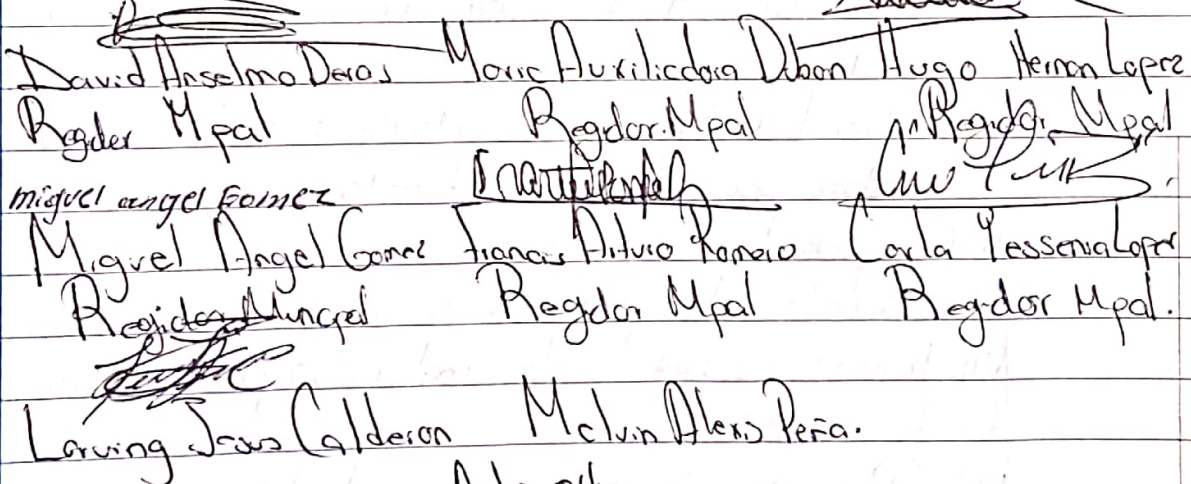 David Anselmo Deras Maria Auxiliadora Dubon Hugo Hernan Lopez
Regdor Mpal Regdor. Mpal Regidor. Mpal
miguel angel Gomez
Miguel Angel Gomez Francis Arturo Romero Carla Yessenia Lopez
Regidor Muncpal Regdor Mpal Regdor Mpal.
Larving Jesus Calderon Melvin Alexis Peña.